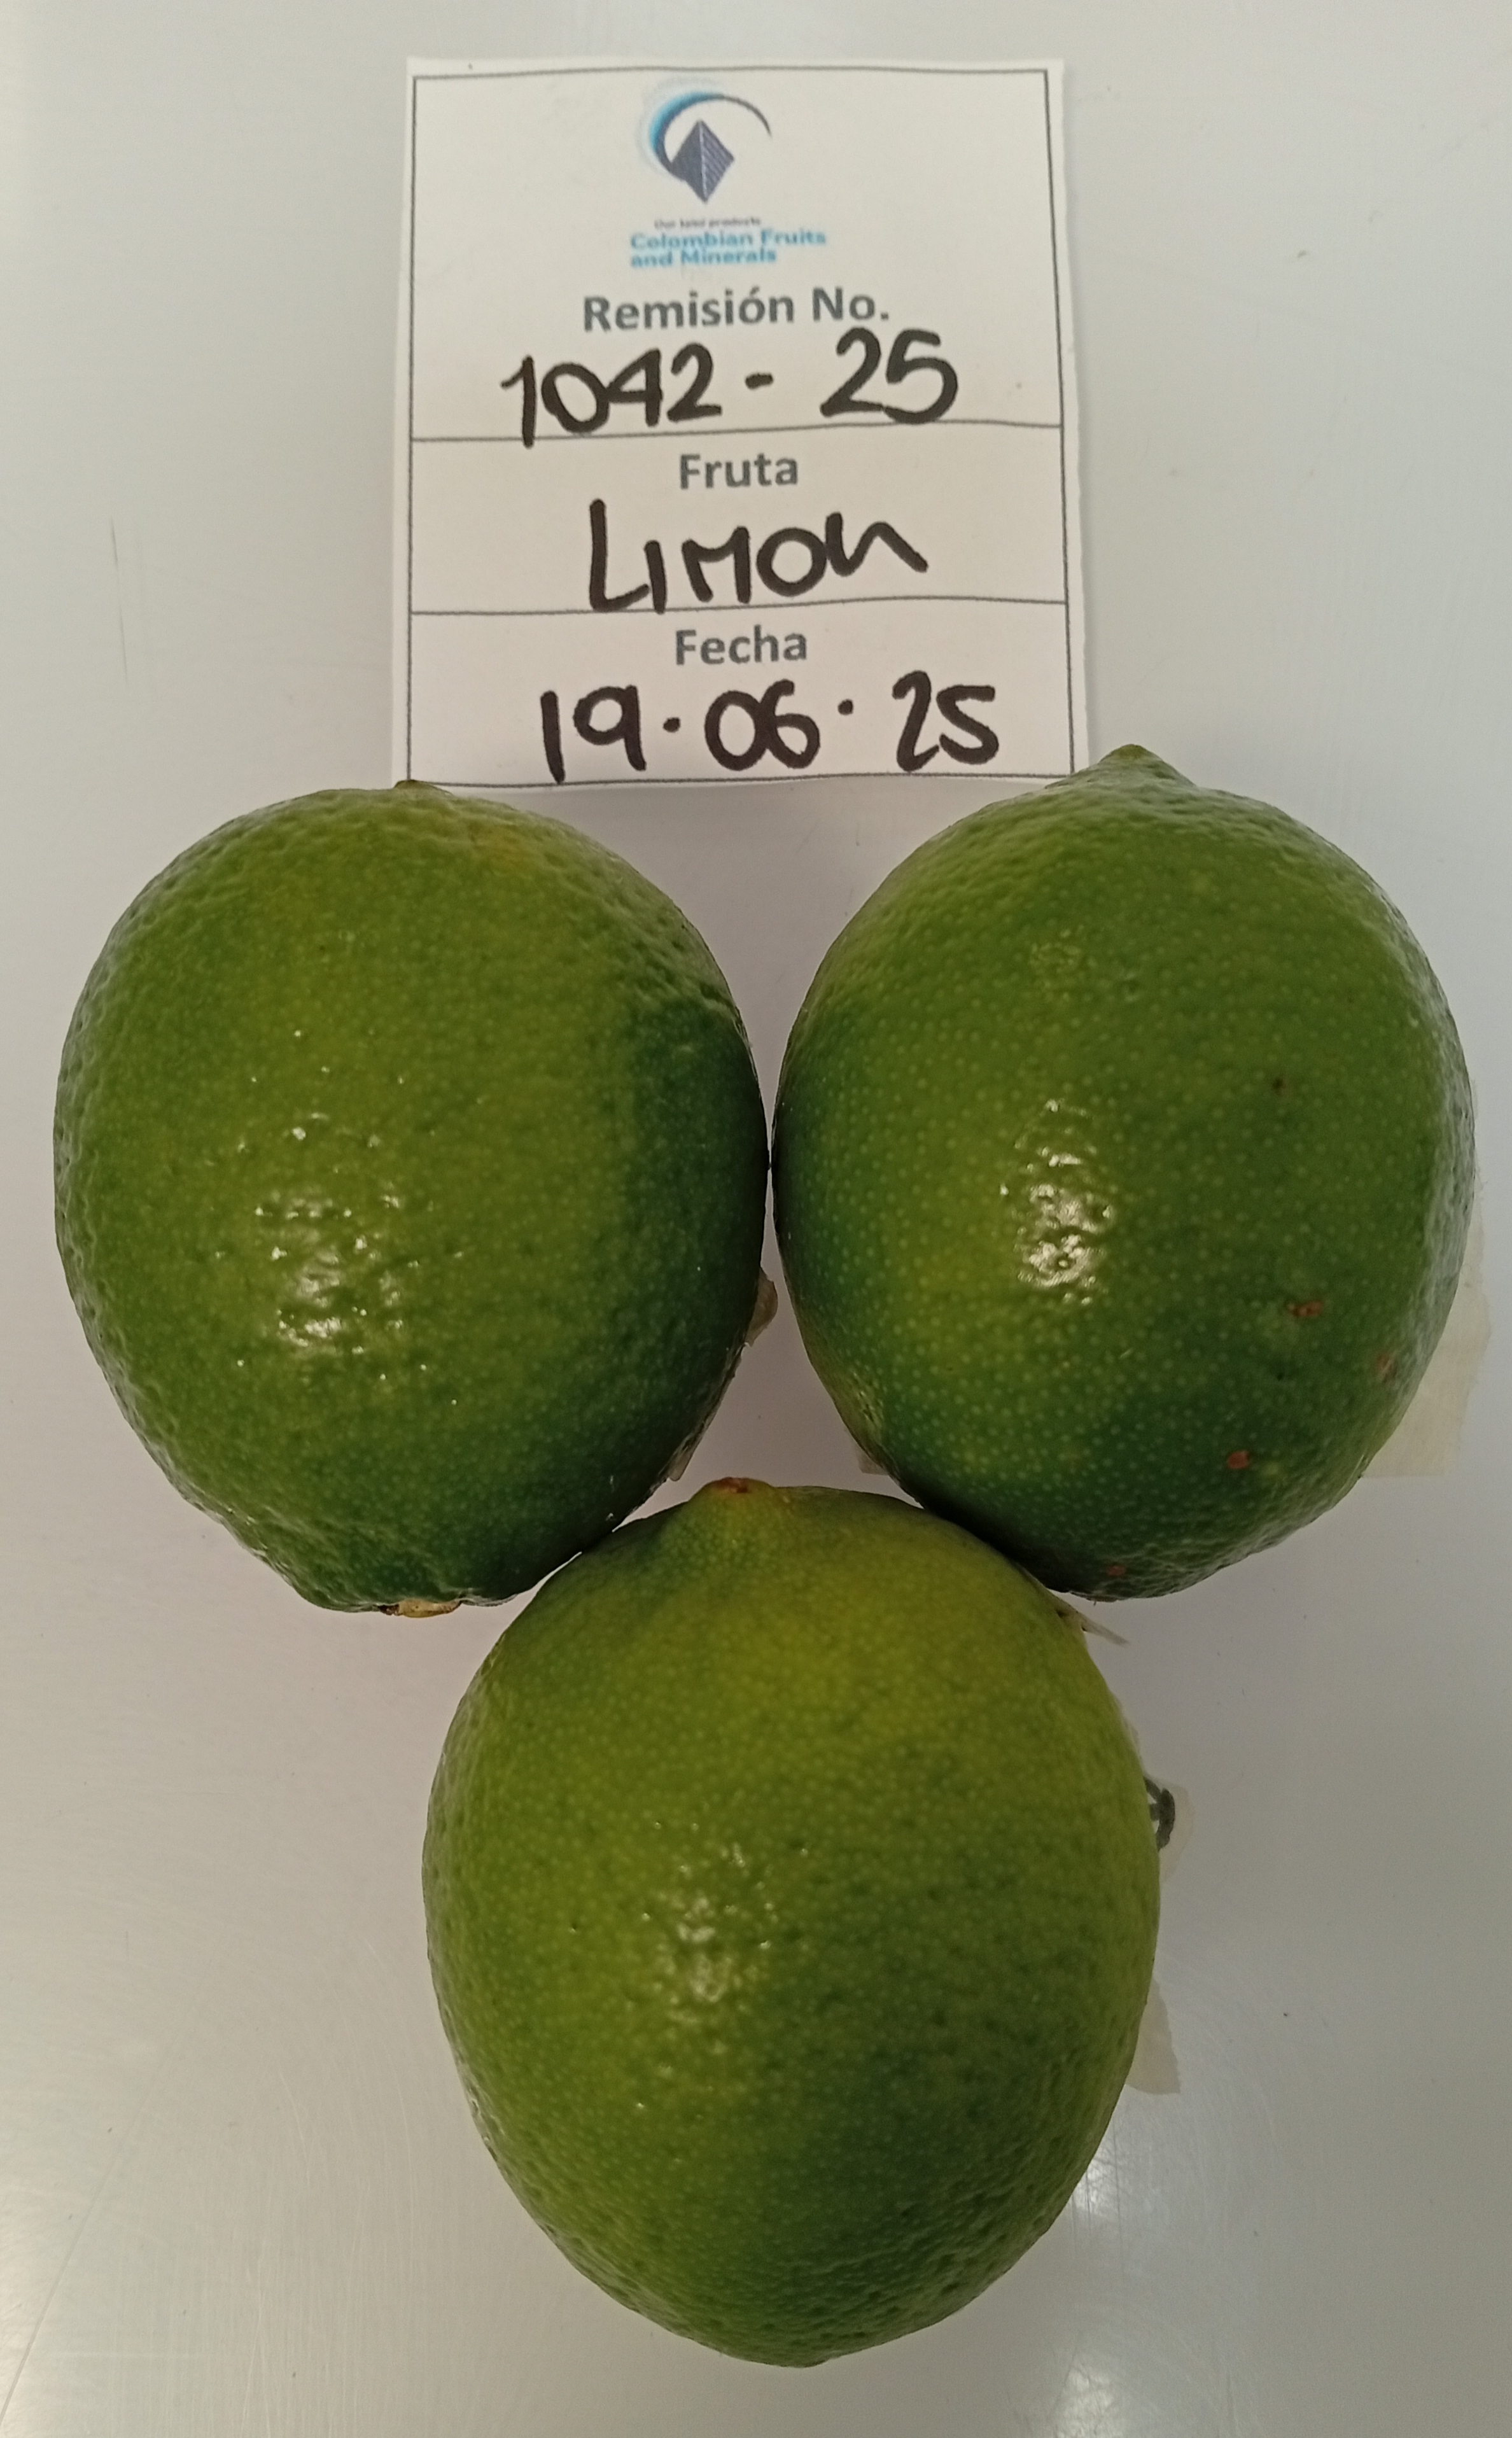 Our land products
Colombian Fruits
and Minerals
Remisión No.
1042 - 25
Fruta
LIMON
Fecha
19.06.25